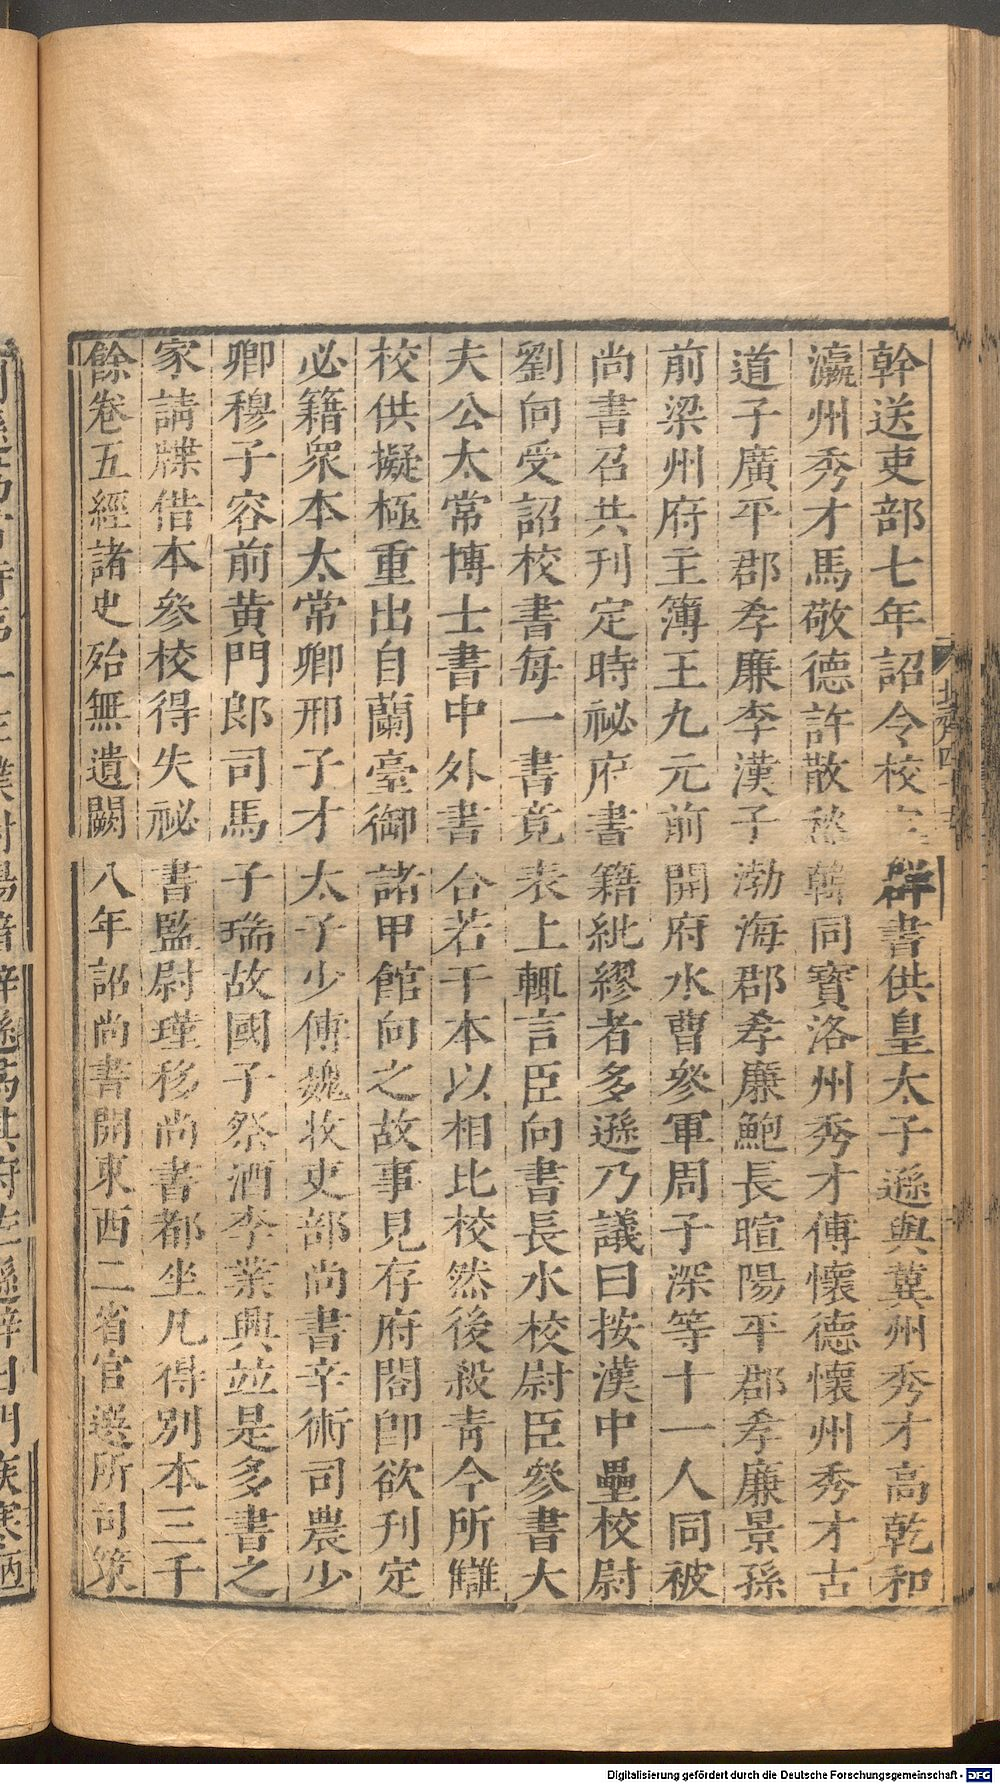 幹送吏部七年詔令校定群書供皇太子遜與冀州秀才高乾和
瀛州秀才馬敬德許散愁韓同寳洛州秀才傅懷德懷州秀才古
道子廣平郡孝廉李漢子渤海郡孝廉鮑長暄陽平郡孝廉景孫
前梁州府主簿王九元前開府水曹參軍周子深等十一人同被
尚書召共刊定時祕府書籍紕繆者多遜乃議曰按漢中壘校尉
劉向受詔校書每一書竟表上輒言臣向書長水校尉臣參書大
夫公太常博士書中外書合若干本以相比校然後殺青今所讎
校供擬極重出自蘭臺御諸甲館向之故事見存府閣卽欲刊定
必籍衆本太常卿邢子才太子少傅魏收吏部尚書辛術司農少
卿穆子容前黄門郎司馬子瑞故國子祭酒李業興並是多書之
家請牒借本參校得失祕書監尉瑾移尚書都坐凡得別本三千
餘卷五經諸史殆無遺闕八年詔尚書開東西二省官選所司策
北齊四十五
Digitalisierung gefördert durch die Deutsche Forschungsgemeinschaft - DFG